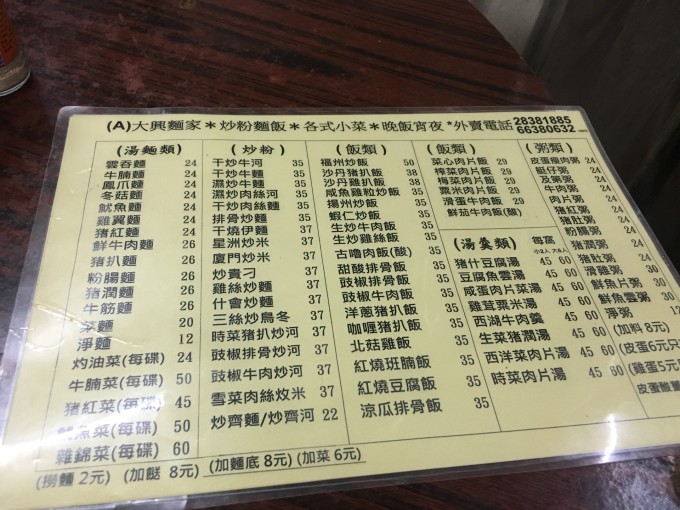 (A)大興麵家＊炒粉麵飯＊各式小菜＊晚飯宵夜*外賣電話 28381885
66380632
(湯麵類)
雲吞麵 24
牛腩麵 24
鳳爪麵 24
冬菇麵 24
魷魚麵 24
雞翼麵 24
猪紅麵 24
鮮牛肉麵 26
猪扒麵 26
粉腸麵 26
猪潤麵 26
牛筋麵 26
菜麵 20
淨麵 12
灼油菜(每碟) 24
牛腩菜(每碟) 50
猪紅菜(每碟) 45
魷魚菜(每碟) 50
雜錦菜(每碟) 60
(炒粉)
干炒牛河 35
干炒牛麵 35
濕炒牛河 35
濕炒肉絲河 35
干炒肉絲麵 35
排骨炒麵 35
干燒伊麵 35
星洲炒米 37
廈門炒米 37
炒貴刁 37
雞絲炒麵 37
什會炒麵 37
三絲炒烏冬 37
時菜猪扒炒河 37
豉椒排骨炒河 37
豉椒牛肉炒河 37
雪菜肉絲炆米 37
炒齋麵/炒齋河 22
(飯類)
福州炒飯 50
沙丹猪扒飯 38
沙丹雞扒飯 38
咸魚雞粒炒飯 35
揚州炒飯 35
蝦仁炒飯 35
生炒牛肉飯 35
生炒雞絲飯 35
古嚕肉飯(酸) 35
甜酸排骨飯 35
豉椒排骨飯 35
豉椒牛肉飯 35
洋蔥猪扒飯 35
咖喱猪扒飯 35
北菇雞飯 35
紅燒班腩飯 35
紅燒豆腐飯 35
涼瓜排骨飯 35
(飯類)
菜心肉片飯 29
榨菜肉片飯 29
梅菜肉片飯 29
粟米肉片飯 29
滑蛋牛肉飯 29
鮮茄牛肉飯(酸)
(湯羹類) 每窩
小2人 大4人
猪什豆腐湯 45 60
豆腐魚雲湯 45 60
咸蛋肉片菜湯 45 60
雞茸粟米湯 45 60
西湖牛肉羹 45 60
生菜猪潤湯 45 60
西洋菜肉片湯 45 60
時菜肉片湯 45 60
(粥類)
皮蛋瘦肉粥 24
艇仔粥 24
及第粥 24
牛肉粥 24
肉片粥 24
猪紅粥 24
猪肚粥 24
粉腸粥 24
猪潤粥 24
滑雞粥 30
鮮魚片粥 30
鮮魚雲粥 30
淨粥 12
(加料 8元)
(皮蛋 6元只
(雞蛋 5元
皮蛋酸薑
(撈麵 2元) (加餸 8元) (加麵底 8元) (加菜 6元)